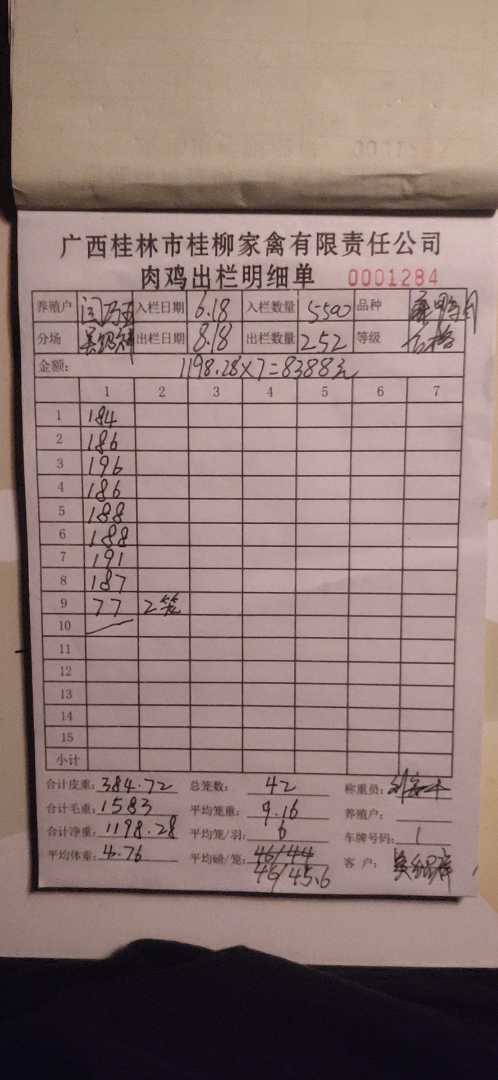 广西桂林市桂柳家禽有限责任公司
肉鸡出栏明细单 0001284
养殖户 入栏日期 6.18 入栏数量 5500 品种
分场 吴绍祥 出栏日期 8.18 出栏数量 252 等级 合格
金额: 1198.28×7=8388元
1 2 3 4 5 6 7
1 184
2 186
3 196
4 186
5 188
6 188
7 191
8 187
9 77 2笼
10
11
12
13
14
15
小计
合计皮重: 384.72 总笼数: 42 称重员:
合计毛重: 1583 平均笼重: 9.16 养殖户:
合计净重: 1198.28 平均笼/羽: 6 车牌号码: 1
平均体重: 4.76 平均磅/笼: 46/44 客户: 吴绍祥
46/45.6